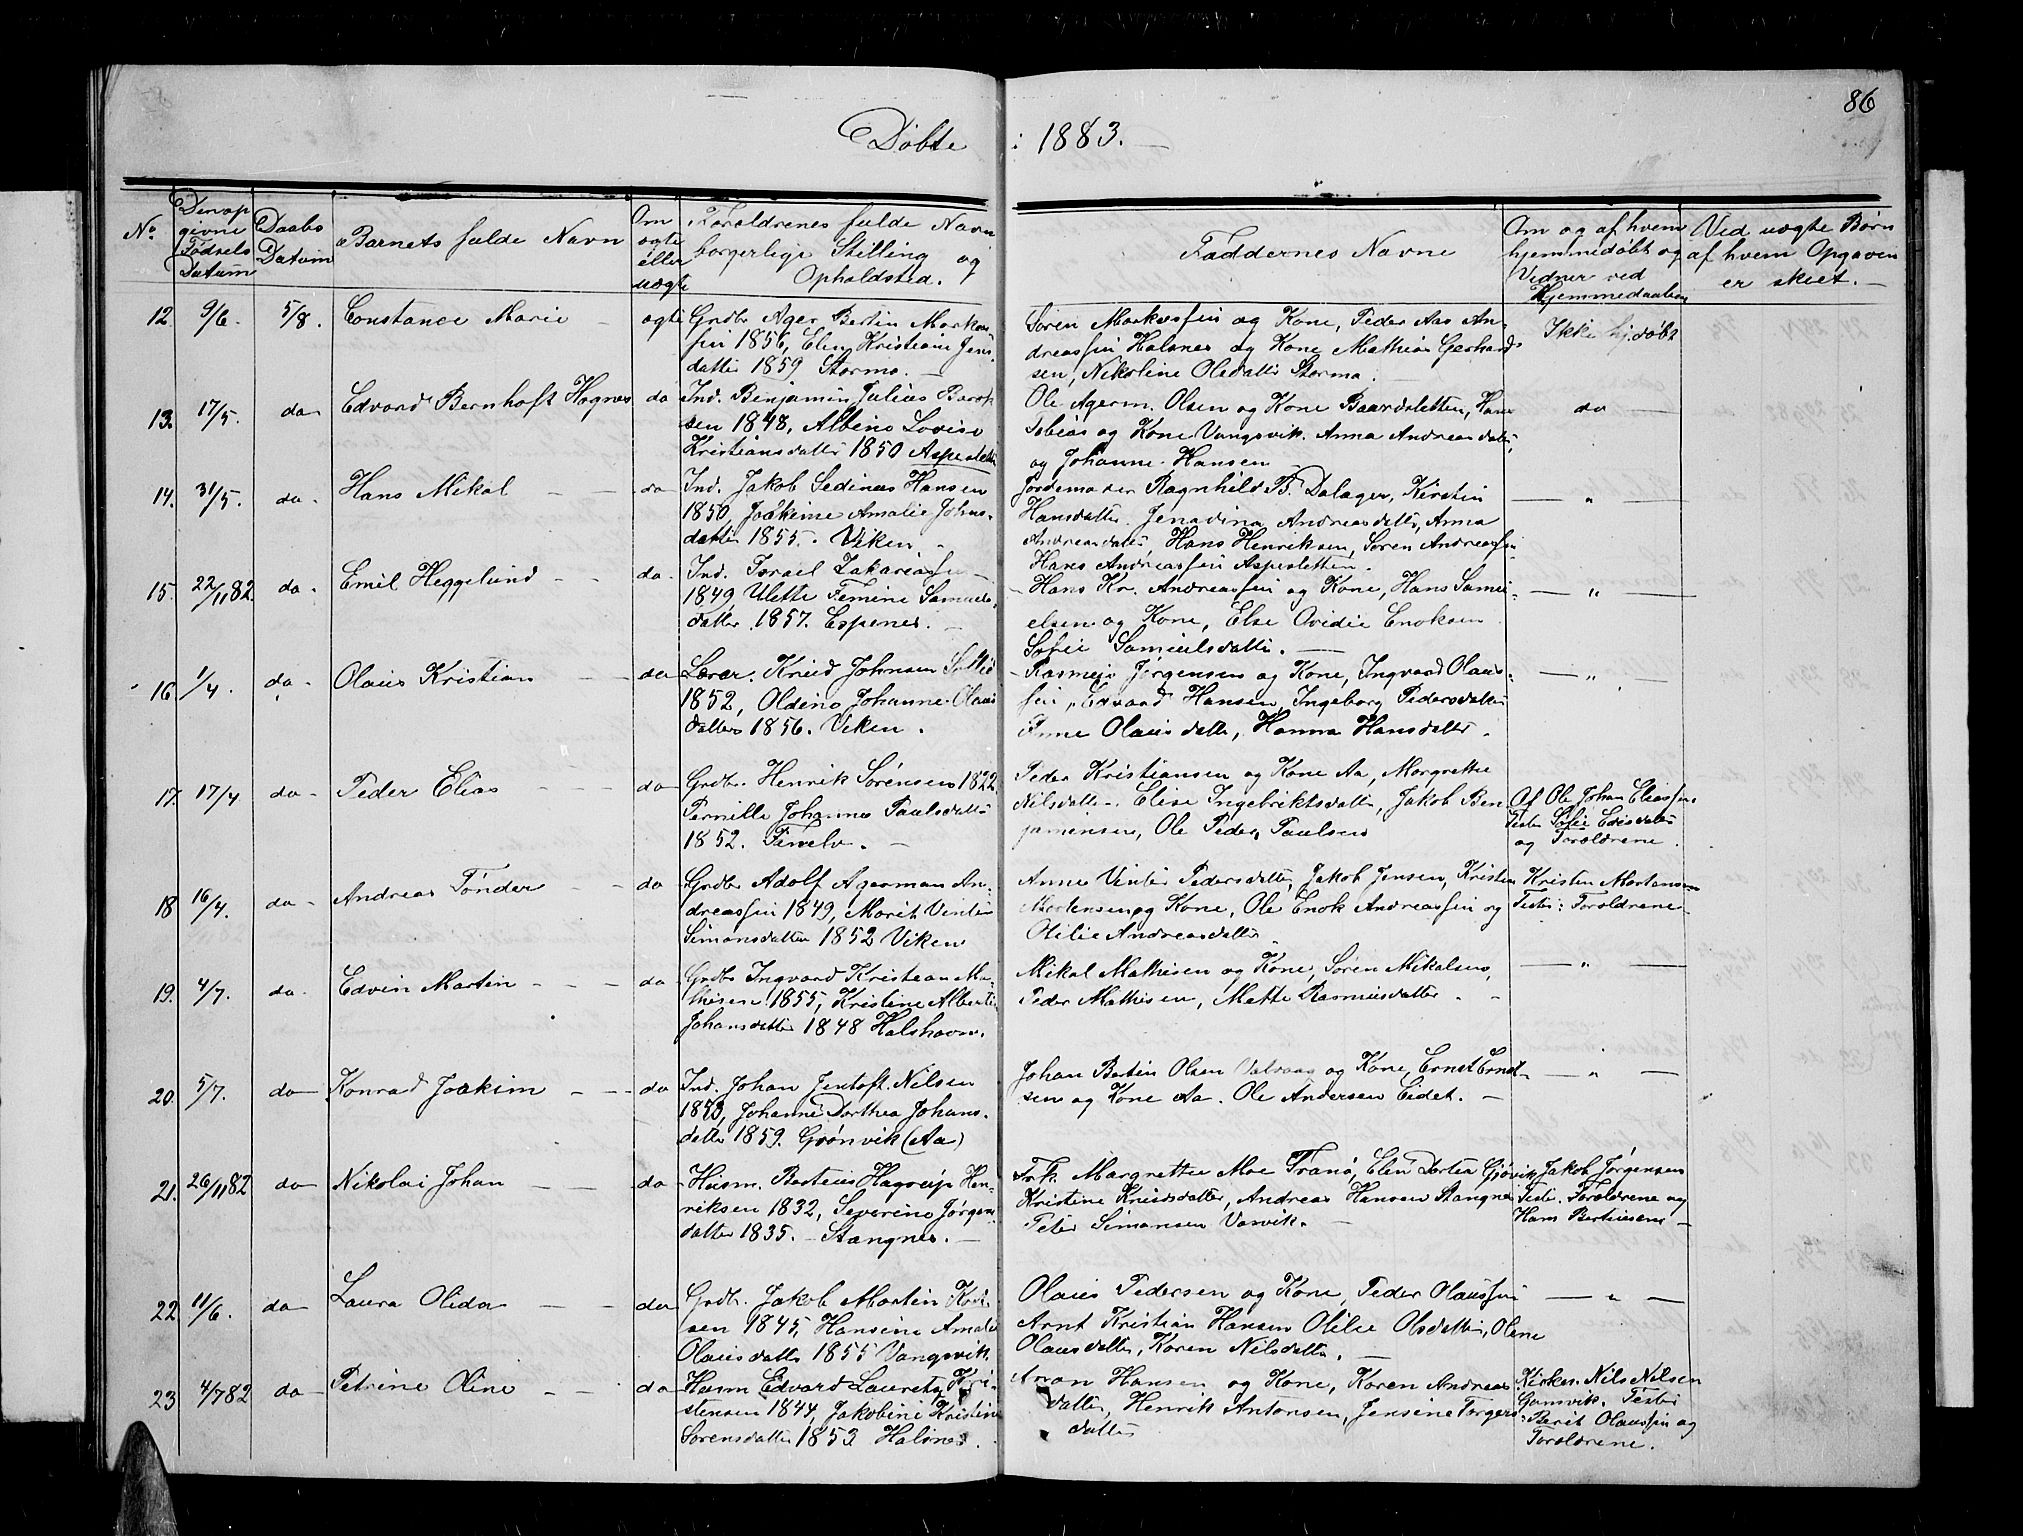 86
Døbte i 1883.
No.
Den op
givne
Fødsels
Datum
Daabs
Datum
Barnets fulde Navn
Om
ægte
eller
uægte
Forældrenes fulde Navn
borgerlige Stilling og
Opholdsted.
Faddernes Navne
Om og af hvem
hjemmedøbt og
Vidner ved
Hjemmedaaben
Ved uægte Børn
af hvem Opgaven
er skeet.
12. 9/6. 5/8. Constance Marie ægte
Grdbr. Ager Bertin Markus
sen 1856, Elen Kristiane Jens
datter 1859 Stormo.
Søren Markussen og Kone, Peder Aas An-
dreassen Halsnes og Kone Mathias Gerhard
sen, Nikoline Olsdatter Stormo.
Ikke hj. døbt
13. 17/5. do Edvard Bernhoft Hagnes do
Ind. Benjamin Julius
sen 1848, Albine Lovise
Kristiansdatter 1850 Aspesletten
Ole Agerm. Olsen og Kone Baardsletten, Hans
Tobias og Kone Vangsvik. Anna Andreasdatter
og Johanne Hansen
do
14. 31/5. do Hans Mikal do
Ind. Jakob Sedinius Hansen
1850, Joakime Amalie Johns-
datter 1855. Viken
Jordemoder Ragnhild B. Dalager, Kirstin
Hansdatter. Jenadina Andreasdatter, Anna
Andreasdatter, Hans Henriksen, Søren Andreassen
Hans Andreassen Aspesletten.
"
15. 22/11 82. do Emil Heggelund do
Ind. Israel Zakariassen
1849, Ulette Femine Samuels
datter 1857. Espenes.
Hans Kr. Andreassen og Kone, Hans Samu-
elsen og Kone, Else Ovidie Enoksen
Sofie Samuelsdatter.
"
16 1/4. do Olaus Kristian do
Lærer. Knud Johnsen
1852, Oldine Johanne Olaus
datter 1856. Viken.
Rasmus Jørgensen og Kone, Ingvard Olaus-
sen, Edvard Hansen, Ingeborg Pedersdatter
Anne Olausdatter, Hanna Hansdatter.
"
17. 17/4 do Peder Elias do
Grdbr. Henrik Sørensen 1822
Pernille Johanna Paulsdatter
1852. Finelv.
Peder Kristiansen og Kone Aa, Margrethe
Nilsdatter. Elise Ingebriktsdatter, Jakob Ben
jaminsen, Ole Peder Paulsen
Af Ole Johan Eliassen
Testes Sofie Eliasdatter
og Forældrene.
18 16/4. do Andreas Tønder do
Grdbr. Adolf Agerman An-
dreassen 1849, Marit Vintir
Simonsdatter 1852 Viken
Anne Vintir Pedersdatter, Jakob Jensen, Kristen
Mortensen og Kone, Ole Enok Andreassen og
Otilie Andreasdatter
Kristen Mortensen
Testes: Forældrene
19. 4/7. do. Edvin Martin do
Grdbr. Ingvard Kristian Ma-
thisen 1855, Kristine Alberte
Johansdatter 1848 Halshavn.
Mikal Mathisen og Kone, Søren Mikalsen,
Peder Mathisen, Mette Rasmusdatter.
"
20. 5/7. do Konrad Joakim do
Ind. Johan Jentoft Nilsen
1853, Johanne Dorthea Johans-
datter 1859. Grønvik (Aa)
Johan Bertin Olsen Valvaag og Kone, Ernst Ernst-
sen og Kone Aa. Ole Andersen Eidet.
"
21. 26/11 82 do Nikolai Johan do
Husm. Bertius Hagerup Hen-
riksen 1832, Severine Jørgens
datter 1835. Stangnes.
Frk. Margrethe Moe Tranø, Elen Dortea Gjøvik
Kristine Knudsdatter, Andreas Hansen Stangnes
Peter Simonsen Vasvik.
Jakob Jørgensen
Testes. Forældrene og
Hans Bertiusen
22. 11/6. do Laura Olida do
Grdbr. Jakob Martin
sen 1845, Hansine Amalie
Olausdatter 1855 Vangsvik.
Olaus Pedersen og Kone, Peder Olaussen
Arnt Kristian Hansen Otilie Olsdatter, Oline
Olausdatter, Karen Nilsdatter.
"
23 4/7 82 do Petrine Oline do
Husm Edvard Lauretz Kri-
stensen 1844, Jakobine Kristine
Sørensdatter 1853 Halsnes.
Aron Hansen og Kone, Karen Andreas
datter, Henrik Antonsen, Jensine Torgers
datter
Kirkes. Nils Nilsen
Gamvik. Testes
Berit Olaussen og
Forældrene.